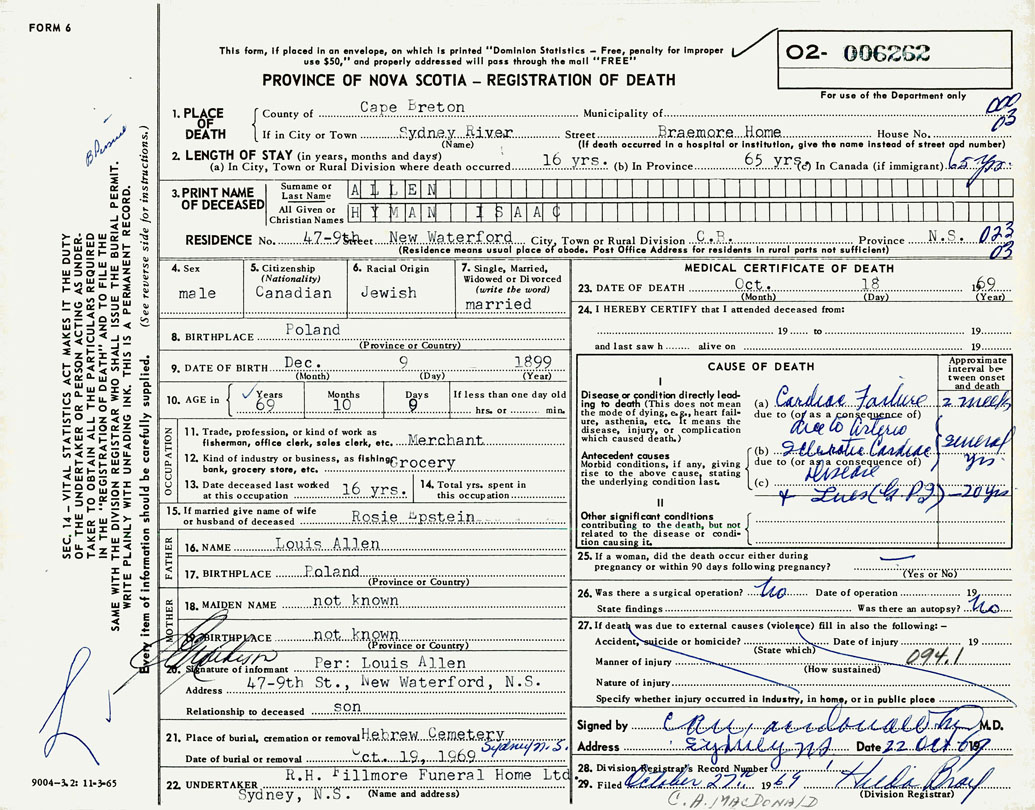 FORM 6
This form, if placed in an envelope, on which is printed "Dominion Statistics – Free, penalty for improper
use $50," and properly addressed will pass through the mail "FREE"
PROVINCE OF NOVA SCOTIA – REGISTRATION OF DEATH
O2- 006262
For use of the Department only
000
03
1. PLACE OF DEATH
County of Cape Breton Municipality of
If in City or Town Sydney River Street Braemore Home House No.
(Name) (If death occurred in a hospital or institution, give the name instead of street and number)
2. LENGTH OF STAY (in years, months and days)
(a) In City, Town or Rural Division where death occurred 16 yrs. (b) In Province 65 yrs. (c) In Canada (if immigrant) 65 yrs.
3. PRINT NAME OF DECEASED
Surname or Last Name ALLEN
All Given or Christian Names HYMAN ISAAC
RESIDENCE No. 47-9th Street New Waterford City, Town or Rural Division C.B. Province N.S. 023
03
(Residence means usual place of abode. Post Office Address for residents in rural parts not sufficient)
4. Sex
male
5. Citizenship
(Nationality)
Canadian
6. Racial Origin
Jewish
7. Single, Married,
Widowed or Divorced
(write the word)
married
8. BIRTHPLACE Poland
(Province or Country)
9. DATE OF BIRTH Dec. 9 1899
(Month) (Day) (Year)
10. AGE in Years Months Days If less than one day old
69 10 9 hrs. or min.
OCCUPATION
11. Trade, profession, or kind of work as
fisherman, office clerk, sales clerk, etc. Merchant
12. Kind of industry or business, as fishing,
bank, grocery store, etc. Grocery
13. Date deceased last worked
at this occupation 16 yrs.
14. Total yrs. spent in
this occupation
15. If married give name of wife
or husband of deceased Rosie Epstein
FATHER
16. NAME Louis Allen
17. BIRTHPLACE Poland
(Province or Country)
MOTHER
18. MAIDEN NAME not known
19. BIRTHPLACE not known
(Province or Country)
20. Signature of informant Per: Louis Allen
Address 47-9th St., New Waterford, N.S.
Relationship to deceased son
21. Place of burial, cremation or removal Hebrew Cemetery
Sydney N.S.
Date of burial or removal Oct. 19, 1969
22. UNDERTAKER R.H. Fillmore Funeral Home Ltd
Sydney, N.S. (Name and address)
MEDICAL CERTIFICATE OF DEATH
23. DATE OF DEATH Oct. 18 1969
(Month) (Day) (Year)
24. I HEREBY CERTIFY that I attended deceased from:
19 to 19
and last saw h alive on 19
CAUSE OF DEATH
Approximate
interval be-
tween onset
and death
I
Disease or condition directly lead-
ing to death (This does not mean
the mode of dying, e.g., heart fail-
ure, asthenia, etc. It means the
disease, injury, or complication
which caused death.)
(a) Cardiac Failure 2 weeks
due to (or as a consequence of)
due to Arterio
Antecedent causes
Morbid conditions, if any, giving
rise to the above cause, stating
the underlying condition last.
(b) Sclerotic Cardiac several
due to (or as a consequence of) yrs.
Disease
(c)
+ Lues (G.P.I) – 20 yrs
II
Other significant conditions
contributing to the death, but not
related to the disease or condi-
tion causing it.
25. If a woman, did the death occur either during
pregnancy or within 90 days following pregnancy?
(Yes or No)
26. Was there a surgical operation? No Date of operation 19
State findings Was there an autopsy? No
27. If death was due to external causes (violence) fill in also the following: –
Accident, suicide or homicide? Date of injury 19
(State which)
Manner of injury 094.1
(How sustained)
Nature of injury
Specify whether injury occurred in industry, in home, or in public place
Signed by M.D.
Address Sydney NS Date 22 Oct 69
28. Division Registrar's Record Number
29. Filed October 27th 1969 Hilda Bray
(Division Registrar)
C. A. MACDONALD
SEC. 14 – VITAL STATISTICS ACT MAKES IT THE DUTY
OF THE UNDERTAKER OR PERSON ACTING AS UNDER-
TAKER TO OBTAIN ALL THE PARTICULARS REQUIRED
IN THE "REGISTRATION OF DEATH" AND TO FILE THE
SAME WITH THE DIVISION REGISTRAR WHO SHALL ISSUE THE BURIAL PERMIT.
WRITE PLAINLY WITH UNFADING INK. THIS IS A PERMANENT RECORD.
Every item of information should be carefully supplied. (See reverse side for instructions.)
9004-3.2: 11-3-65